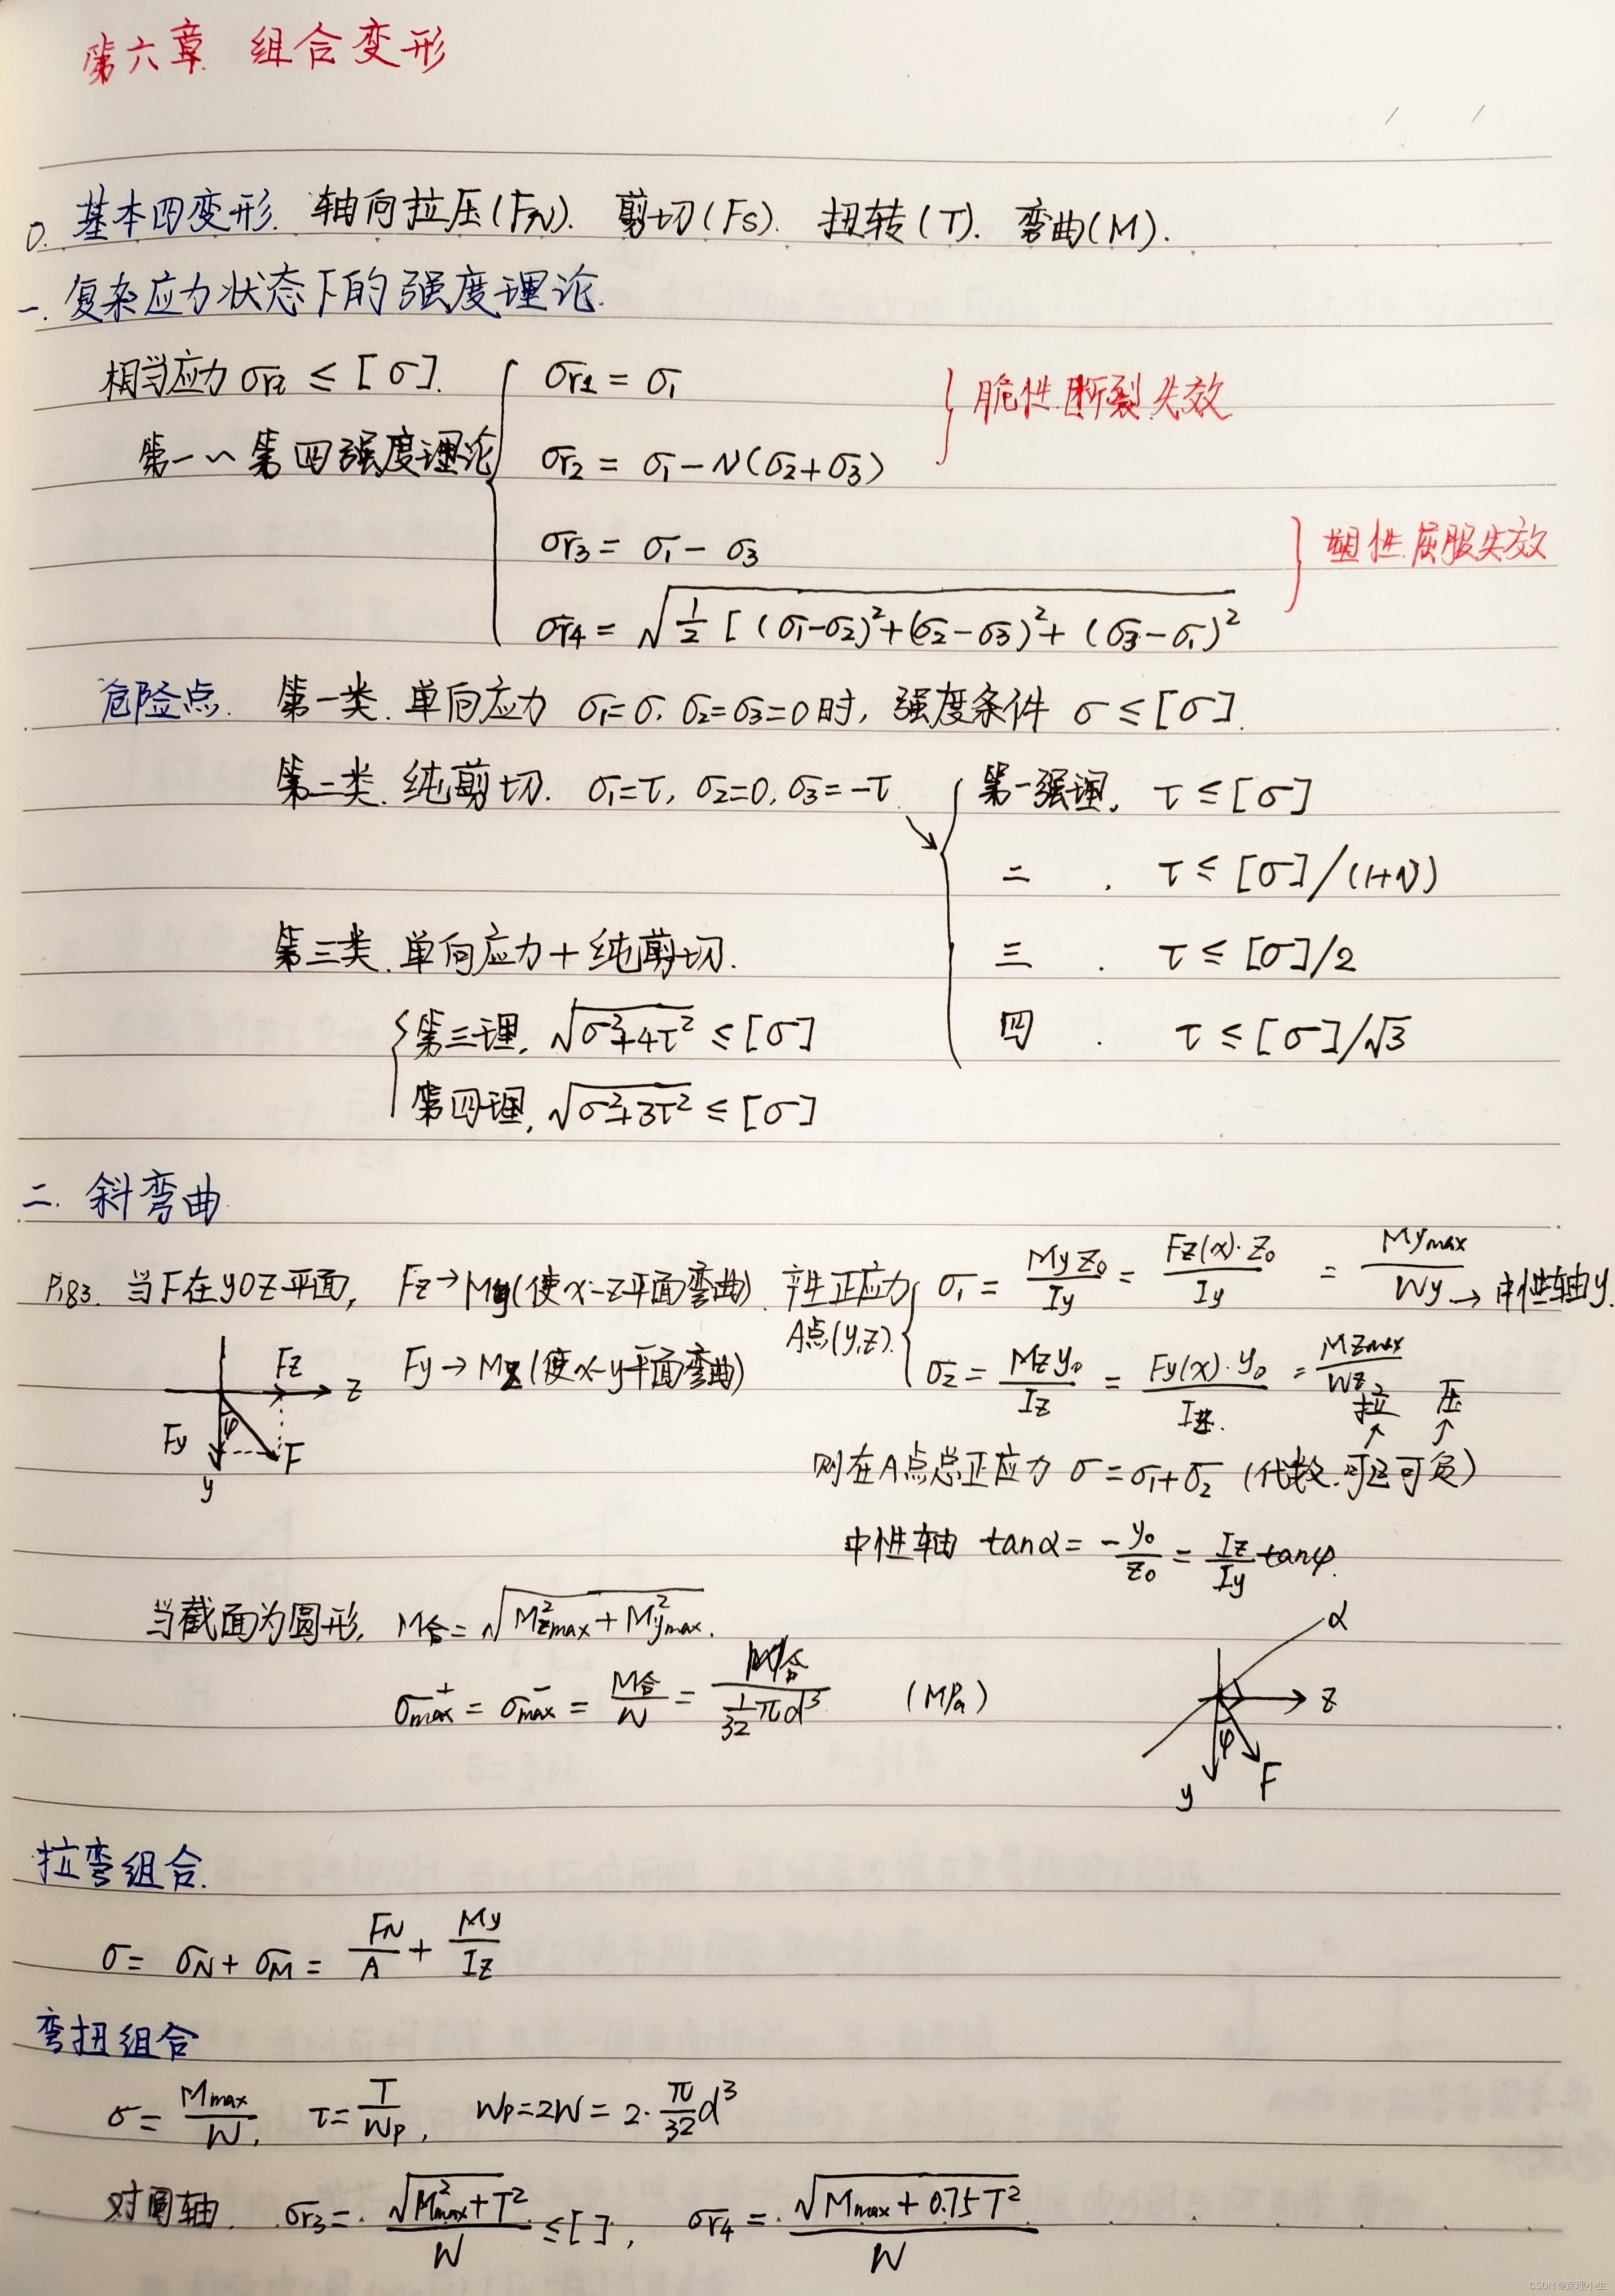 第六章 组合变形
0. 基本四变形. 轴向拉压(FN). 剪切(Fs). 扭转(T). 弯曲(M).
一. 复杂应力状态下的强度理论.
相当应力 σr ≤ [σ].
第一~第四强度理论
σr1 = σ1
σr2 = σ1 - ν(σ2+σ3)
} 脆性断裂失效
σr3 = σ1 - σ3
σr4 = √(1/2 [(σ1-σ2)²+(σ2-σ3)²+(σ3-σ1)²
} 塑性屈服失效
危险点. 第一类. 单向应力 σ1=σ, σ2=σ3=0时, 强度条件 σ ≤ [σ].
第二类. 纯剪切. σ1=τ, σ2=0, σ3=-τ.
第一强理, τ ≤ [σ]
二 . τ ≤ [σ]/(1+ν)
三 . τ ≤ [σ]/2
四 . τ ≤ [σ]/√3
第三类. 单向应力+纯剪切.
第三理, √(σ²+4τ²) ≤ [σ]
第四理, √(σ²+3τ²) ≤ [σ]
二. 斜弯曲
P183. 当F在yOz平面, Fz→My(使x-z平面弯曲). 产生正应力
Fy→Mz(使x-y平面弯曲) A点(y,z).
σ1 = My z0/Iy = Fz(x)·z0/Iy = Mymax/Wy → 中性轴y.
σ2 = Mz y0/Iz = Fy(x)·y0/Iz. = Mzmax/Wz
拉 压
Fz z
Fy φ F
y
则在A点总正应力 σ=σ1+σ2 (代数.可正可负)
中性轴 tanα = -y0/z0 = Iz/Iy tanφ.
当截面为圆形, M合 = √(M²zmax + M²ymax).
σmax⁺ = σmax⁻ = M合/W = M合/(1/32 πd³) (MPa)
α
z
φ
y F
拉弯组合.
σ = σN + σM = FN/A + My/Iz
弯扭组合
σ = Mmax/W, τ = T/Wp, Wp=2W = 2·π/32 d³
对圆轴. σr3 = √(M²max+T²)/W ≤ [ ], σr4 = √(Mmax+0.75T²)/W
CSDN @京理小生